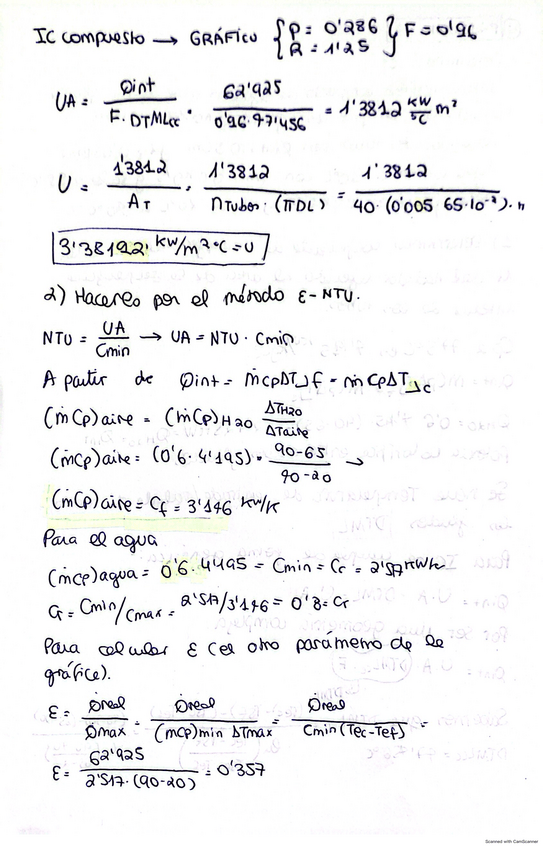 IC compuesto → GRÁFICO { P = 0'286 R = 1'25 } F = 0'96
UA = Qint / F·DTMLcc = 62'925 / 0'96·47'456 = 1'3812 KW/ºC m²
U = 1'3812 / AT = 1'3812 / nTubos·(πDL) = 1'3812 / 40·(0'005 65·10⁻²)·π
3'38192 KW/m²ºC = U
2) Hacerlo por el método ε-NTU.
NTU = UA / Cmin → UA = NTU · Cmin
A partir de Qint = ṁcpΔT)f = ṁcpΔT)c
(ṁcp)aire = (ṁcp)H2O ΔTH2O / ΔTaire
(ṁcp)aire = (0'6·4'195) · 90-65 / 40-20 →
(ṁcp)aire = Cf = 3'146 KW/K
Para el agua
(ṁcp)agua = 0'6·4'195 = Cmin = Cc = 2'517 KW/K
Cr = Cmin/Cmax = 2'517/3'146 = 0'8 = Cr
Para calcular ε (el otro parámetro de la
gráfica).
ε = Qreal / Qmax = Qreal / (ṁcp)min ΔTmax = Qreal / Cmin (Tec-Tef) =
ε = 62'925 / 2'517·(90-20) = 0'357
Scanned with CamScanner